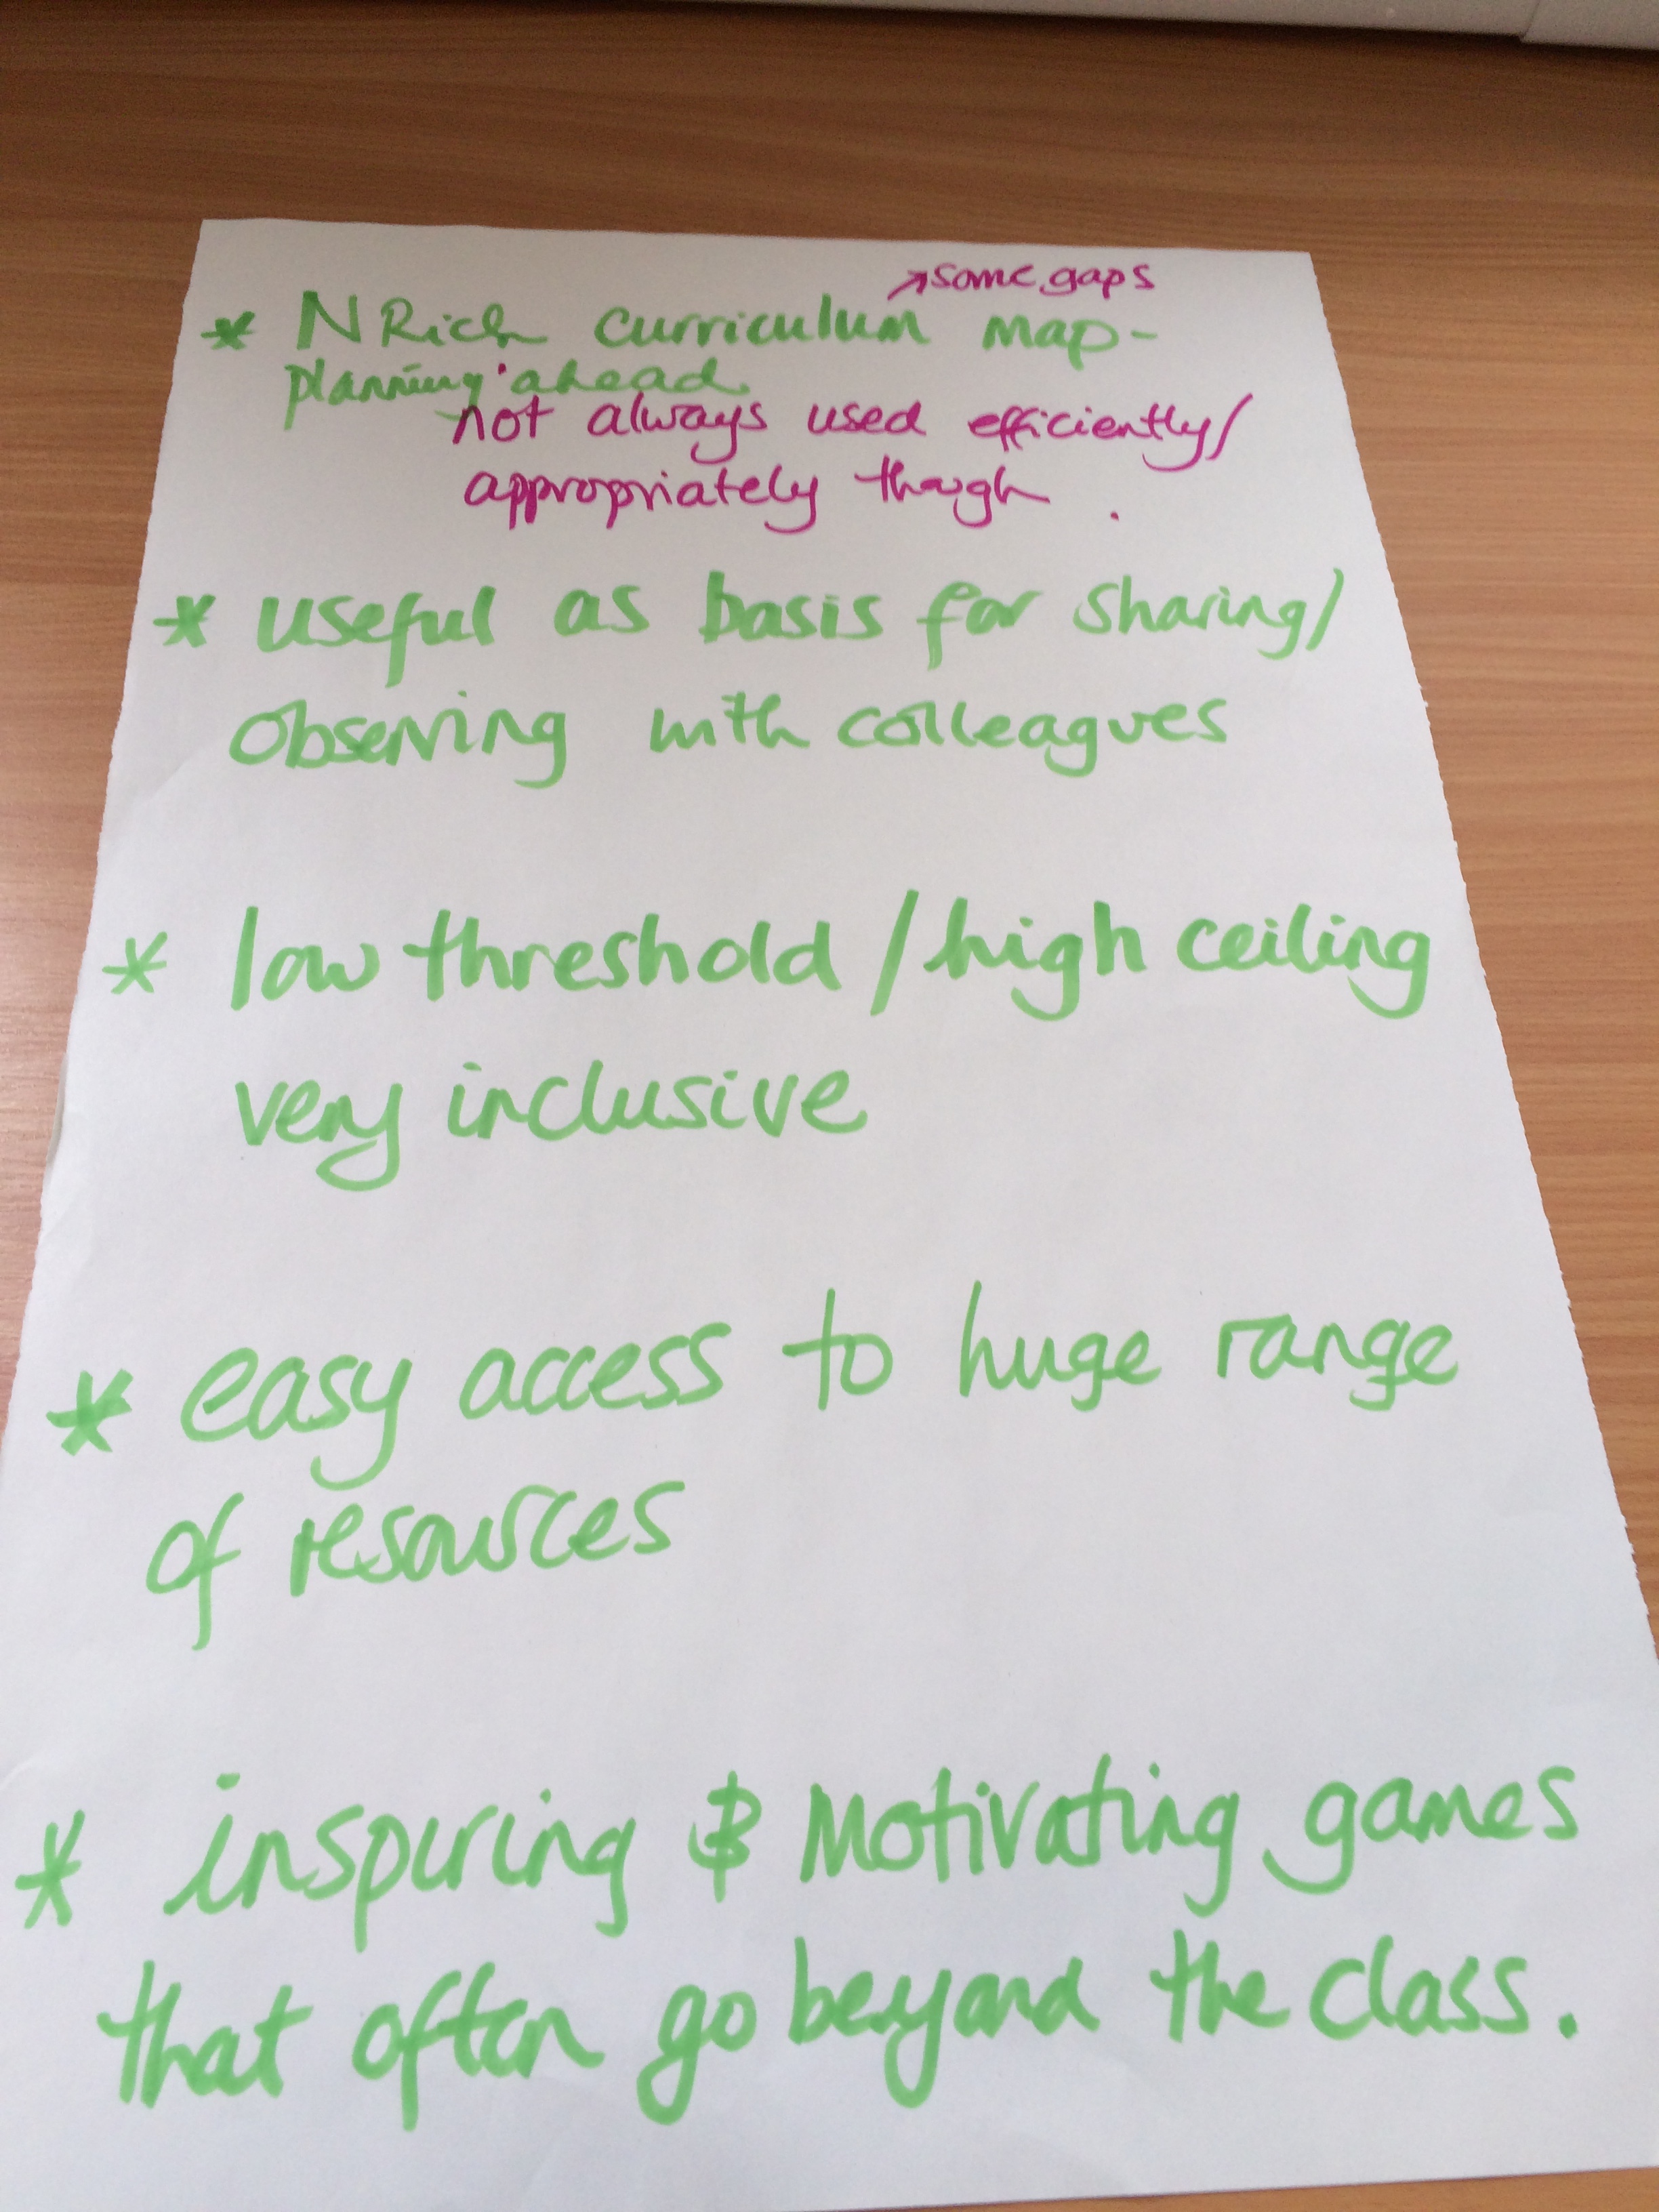 ↗some gaps
* NRich curriculum map-
planning ahead
not always used efficiently/
appropriately though.
* useful as basis for sharing/
observing with colleagues
* low threshold / high ceiling
very inclusive
* easy access to huge range
of resources
* inspiring & Motivating games
that often go beyond the class.